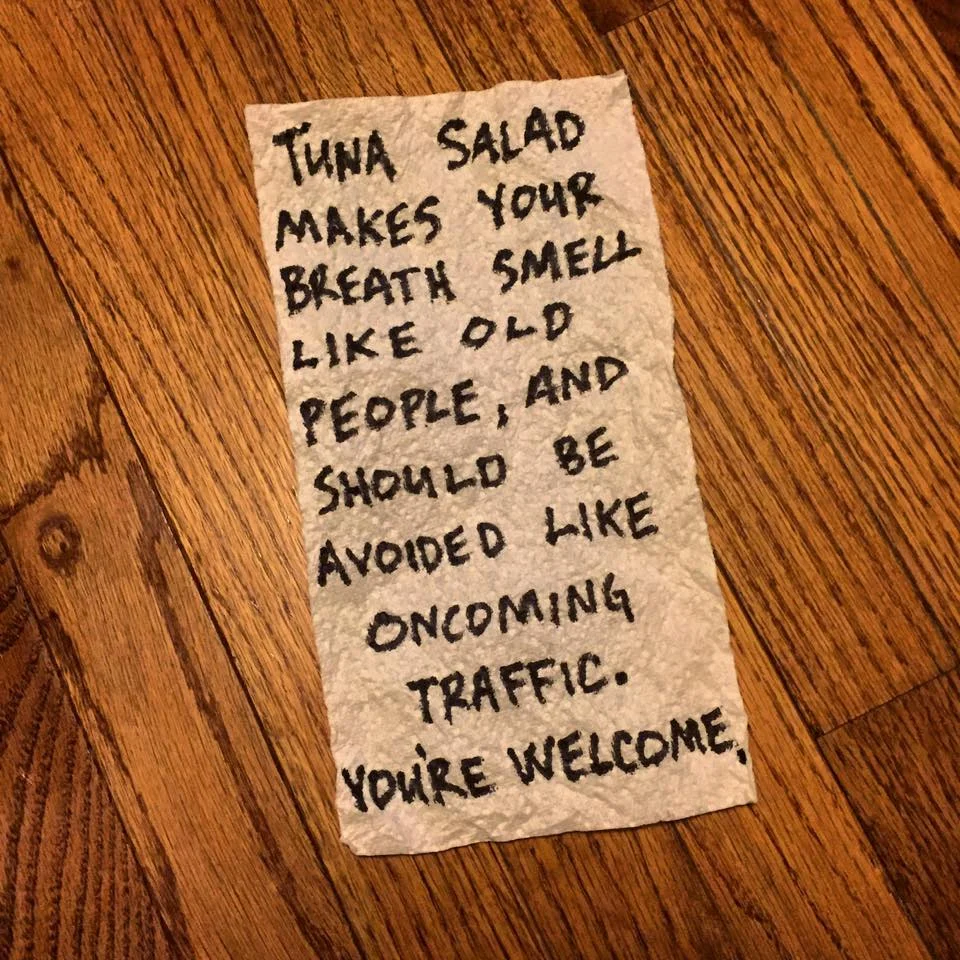 TUNA SALAD
MAKES YOUR
BREATH SMELL
LIKE OLD
PEOPLE, AND
SHOULD BE
AVOIDED LIKE
ONCOMING
TRAFFIC.
YOU'RE WELCOME,